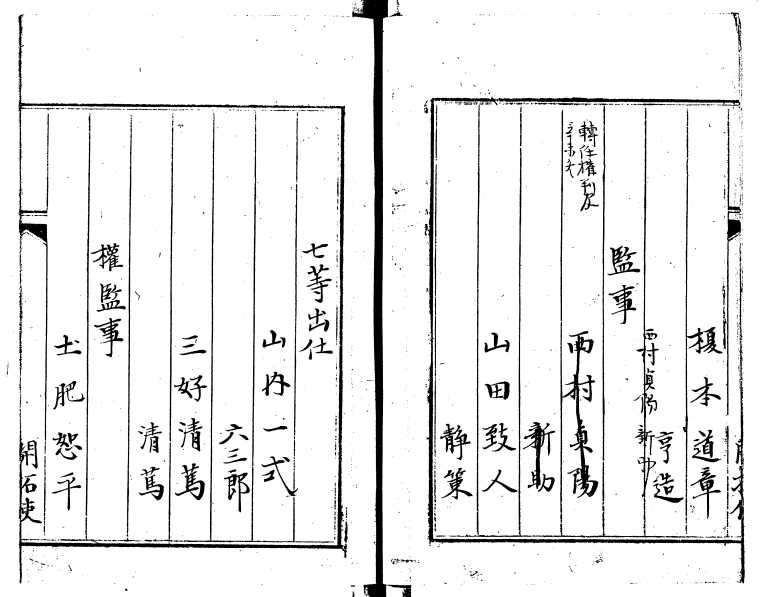 榎本道章
亨造
西村貞陽 新助
監事
轉任權判事
辛未
西村貞陽
新助
山田致人
静策
七等出仕
山内一式
六三郎
三好清篤
清篤
權監事
土肥恕平